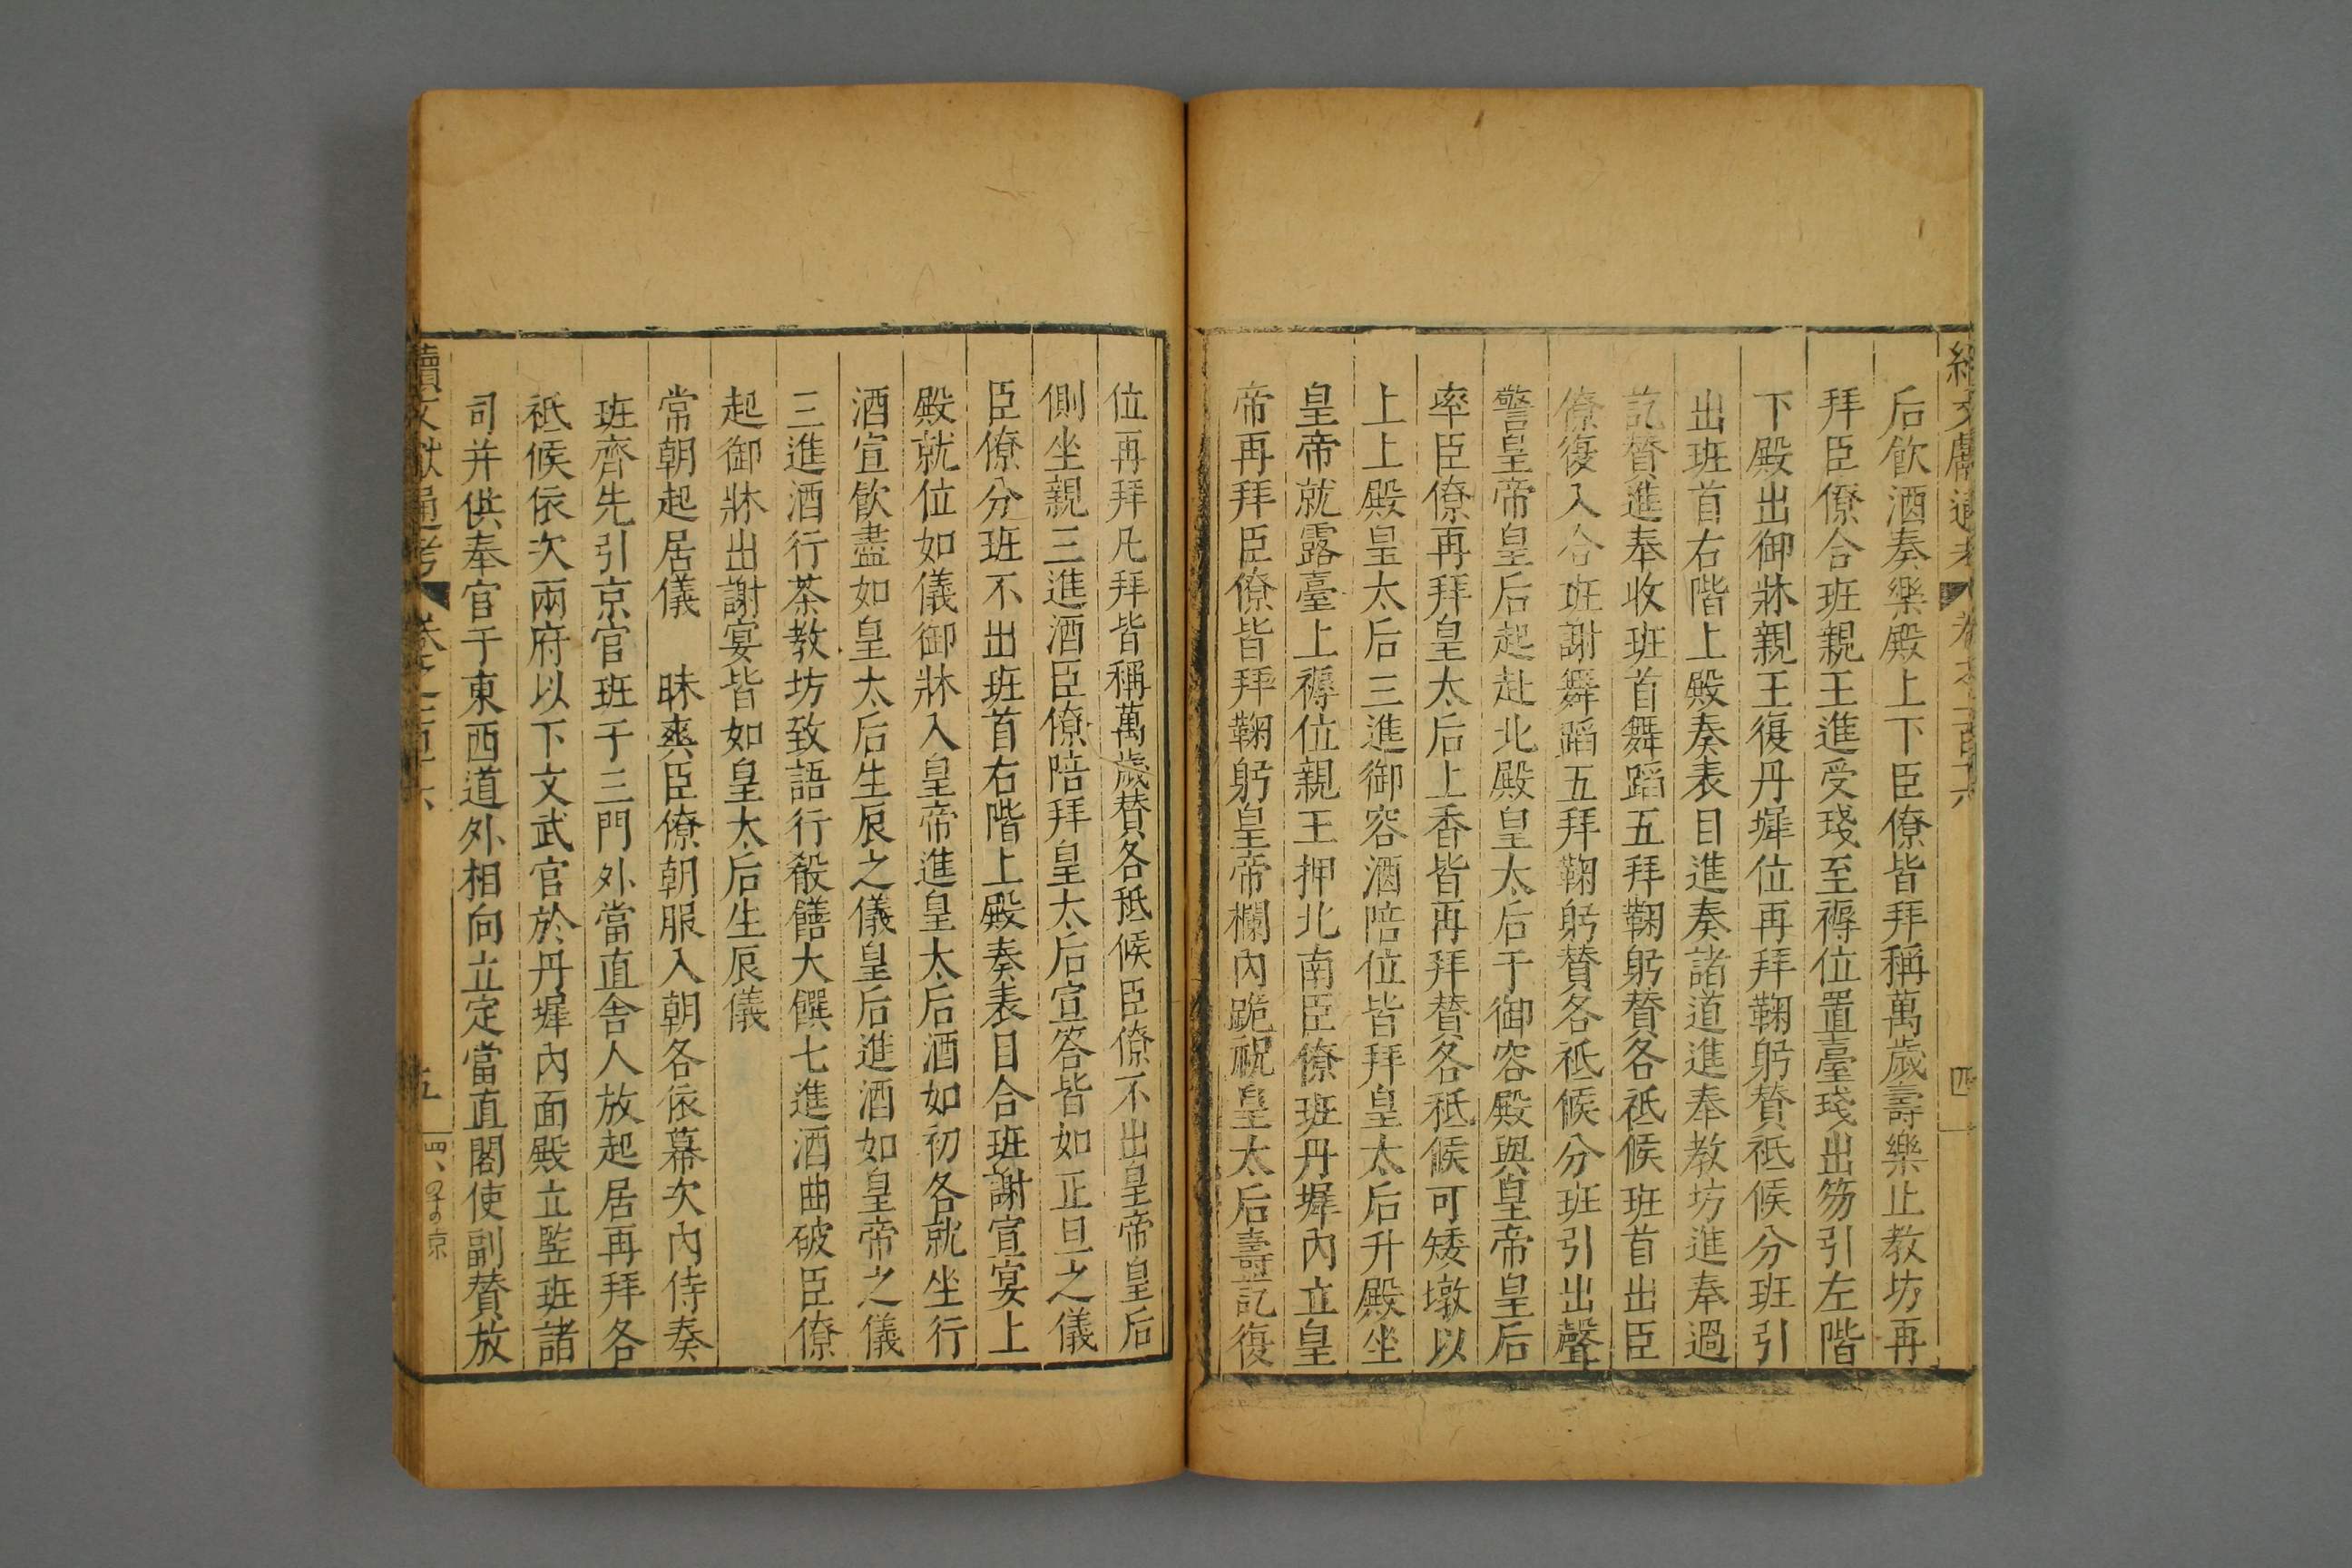 后飲酒奏樂殿上下臣僚皆拜稱萬歲壽樂止教坊再
拜臣僚合班親王進受琖至褥位置臺琖出笏引左階
下殿出御牀親王復丹墀位再拜鞠躬賛祗候分班引
出班首右階上殿奏表目進奏諸道進奉教坊進奉過
訖賛進奉收班首舞蹈五拜鞠躬賛各祗候班首出臣
僚復入合班謝舞蹈五拜鞠躬賛各祗候分班引出聲
警皇帝皇后起赴北殿皇太后于御容殿與皇帝皇后
率臣僚再拜皇太后上香皆再拜賛各祗候可矮墩以
上上殿皇太后三進御容酒陪位皆拜皇太后升殿坐
皇帝就露臺上褥位親王押北南臣僚班丹墀內立皇
帝再拜臣僚皆拜鞠躬皇帝欄內跪祝皇太后壽訖復
位再拜凡拜皆稱萬歲賛各祗候臣僚不出皇帝皇后
側坐親三進酒臣僚陪拜皇太后宣答皆如正旦之儀
臣僚分班不出班首右階上殿奏表目合班謝宣宴上
殿就位如儀御牀入皇帝進皇太后酒如初各就坐行
酒宣飲盡如皇太后生辰之儀皇后進酒如皇帝之儀
三進酒行茶教坊致語行殽饍大饌七進酒曲破臣僚
起御牀出謝宴皆如皇太后生辰儀
常朝起居儀 昧爽臣僚朝服入朝各依幕次內侍奏
班齊先引京官班于三門外當直舍人放起居再拜各
祗候依次兩府以下文武官於丹墀內面殿立監班諸
司并供奉官于東西道外相向立定當直閣使副賛放
續文獻通考 卷之二百十六 五